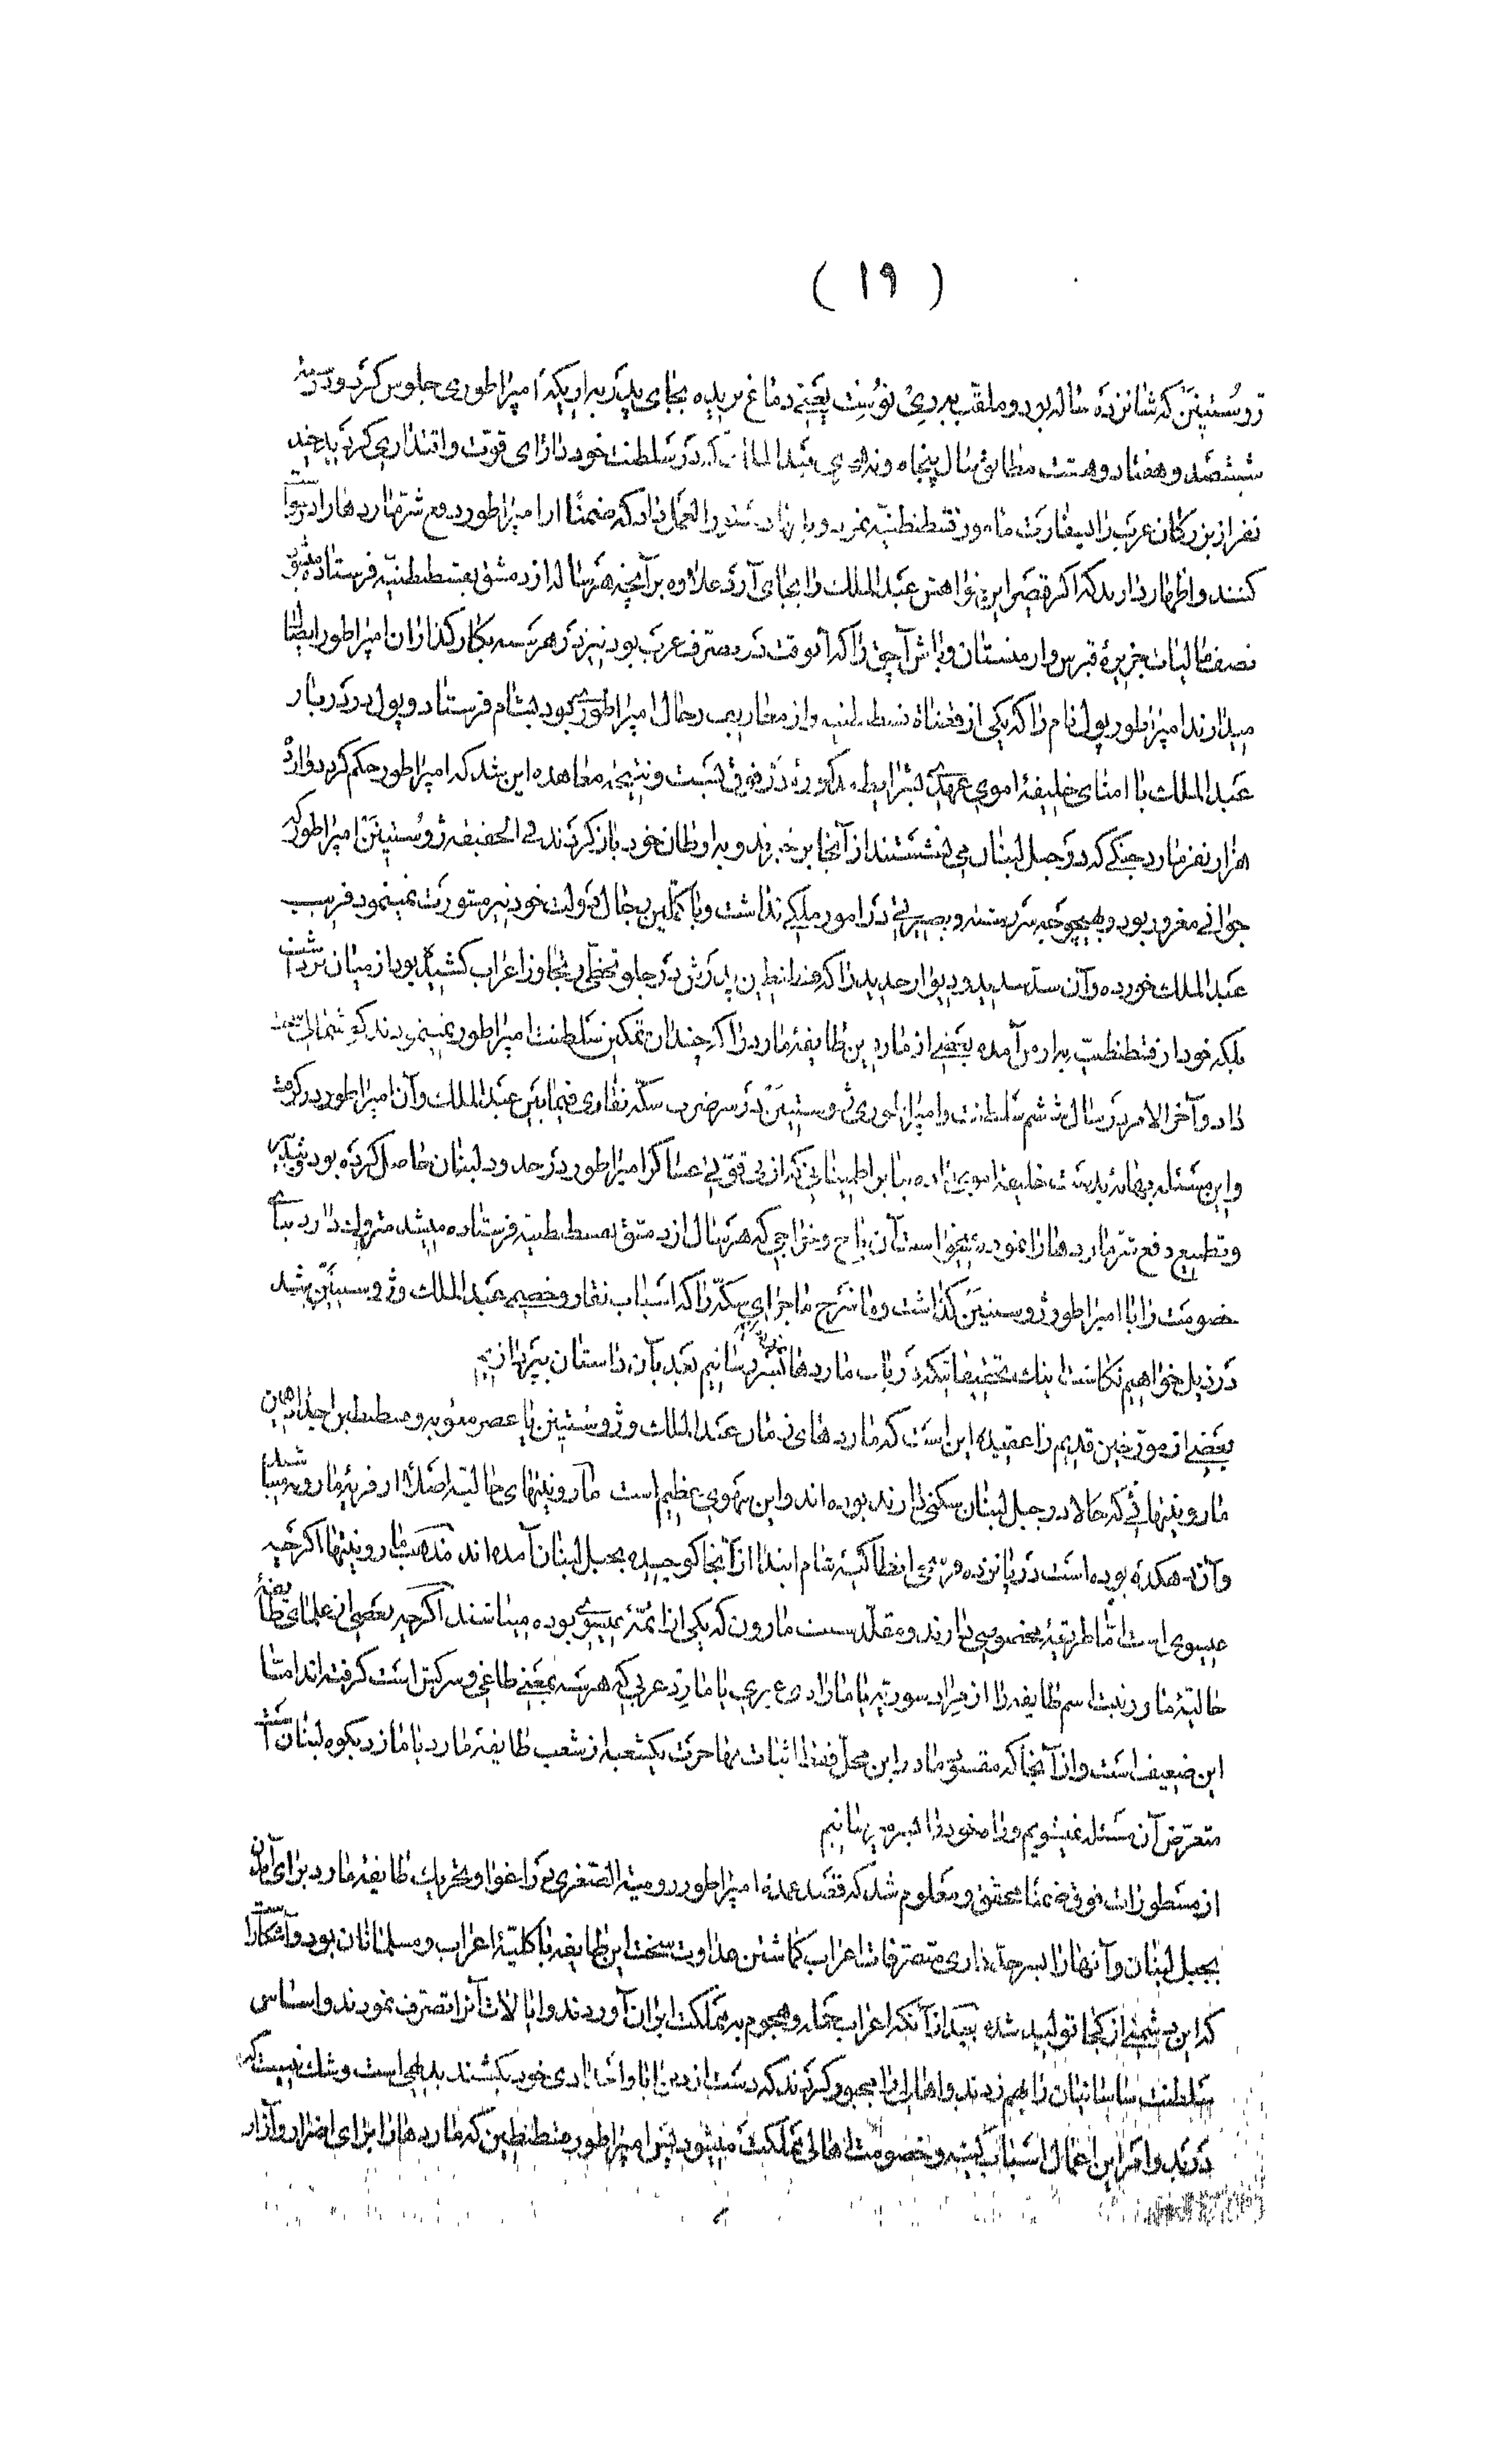 ( ۱۹ )
ژوستینین که شانزده ساله بود و ملقب به ری نوست یعنی دماغ بریده بجای پدر بر اریکه امپراطوری جلوس کرد و در سنه
ششصد و هفتاد و هشت مطابق سال پنجاه و نه هجری عبد الملک که در سلطنت خود دارای قوت و اقتداری گردید چند
نفر از بزرکان عرب را بسفارت مامور قسطنطنیه نمود و بانها دستور العمل داد که ضمنا از امپراطور دفع شر مارد ها را درخواست
کنند و اظهار دارند که اکر قیصر این خواهش عبد الملک را بجای آرد علاوه بر آنچه هر ساله از دمشق بقسطنطنیه فرستاده میشود
نصف مالیات جزیره قبرس و ارمنستان و باش آچق را که آنوقت در تصرف عرب بود نیز در هر سه بکار کذاران امپراطور ایصال
میدارند امپراطور پول نام را که یکی از قضاة قسطنطنیه و از معاریف رجال امپراطوری بود بشام فرستاد و پول در دربار
عبد الملک با امنای خلیفه اموی عهدی بشرایط مذکوره در فوق ببست و نتیجه معاهده این شد که امپراطور حکم کرد دوازده
هزار نفر مارد جنکی که در جبل لبنان می نشستند از آنجا برخیزند و به اوطان خود باز کردند فی الحقیقه ژوستینین امپراطور که
جوانی مغرور بود و بهیچوجه سررشته و بصیرتی در امور ملکیه نداشت و با کملین رجال دولت خود نیز مشورت نمینمود فریب
عبد الملک خورده و آن سد سدید و دیوار حدید را که قسطنطین پدرش در جلو تخطی و تجاوز اعراب کشیده بود از میان برداشت
بلکه خود از قسطنطنیه براه در آمده بعضی از ماردین طایفه مارد را که چندان تمکین سلطنت امپراطور نمینمودند کوشمالی سخت
داد و آخر الامر در سال ششم سلطنت و امپراطوری ژوستینین در سر ضرب سکه نقاری فیمابین عبد الملک و آن امپراطور در کرفت
و این مسئله بهانه بدست خلیفه اموی داده بنا بر اطمینانی که از بی قوتی عساکر امپراطور در حدود لبنان حاصل کرده بود
و تطمیع دفع شر مارد ها را نموده نمیخواست آن باج و خراجی که هر سال از دمشق بقسطنطنیه فرستاده میشد متروک دارد بنای
خصومت را با امپراطور ژوستینین کذاشت و ما شرح ماجرای سکه را که اسباب نقار و خصیمی عبد الملک و ژوستینین شد
در ذیل خواهیم نکاشت اینک تحقیقاتیکه در باب مارد ها داریم بسر رسانیم بعد بآن داستان بپردازیم
بعضی از مورخین قدیم را عقیده این است که مارد های زمار عبد الملک و ژوستینین یا عصر معویه و قسطنطین اجداد همین
مارونیتهائی که حالا در جبل لبنان سکنی دارند بوده اند و این سهوی عظیم است مارونیتهای حالیه اصلا از قریه مارونیه میباشند
و آن دهکده بوده است در پانزده فرسخی انطاکیه شام ابتدا از آنجا کوچیده بجبل لبنان آمده اند مذهب مارونیتها اکر چه
عیسوی است اما طریقه مخصوصی دارند و مقلد سنت مارون که یکی از ائمه عیسوی بوده میباشند اکر چه بعضی از علمای طایفه
حالیه مارونیت اسم طایفه را از میراد سوریه یا مارادی عبری یا مارد عربی که هر سه بمعنی طاغی و سرکش است کرفته اند اما
این ضعیف است و از آنجا که مقصود ما در این محل فقط اثبات مهاجرت یکشعبه از شعب طایفه مارد یا ماز در بکوه لبنان است
متعرض آن مسئله نمیشویم و مرام خود را بسر میرسانیم
از مسطورات فوق ضمنا محقق و معلوم شد که قصد عمده امپراطور رومیه الصغری در اغوا و تحریک طایفه مارد برای آمدن
بجبل لبنان و آنها را بسرحد داری متصرفات اعراب کماشتن عداوت سخت این طایفه با کلیه اعراب و مسلمانان بود و آشکار است
که این دشمنی از کجا تولید شده بعد از آنکه اعراب حمله و هجوم به مملکت ایران آوردند و ایالات آنرا تصرف نمودند و اساس
سلطنت ساسانیان را بهم زدند و اهالی را مجبور کردند که دست از دین ابا و اجدادی خود بکشند بدیهی است و شک نیست که
درند و امر این اعمال اسباب کینه و خصومت اهالی مملکت میشود پس امپراطور قسطنطین که مارد ها را برای اضرار و آزار